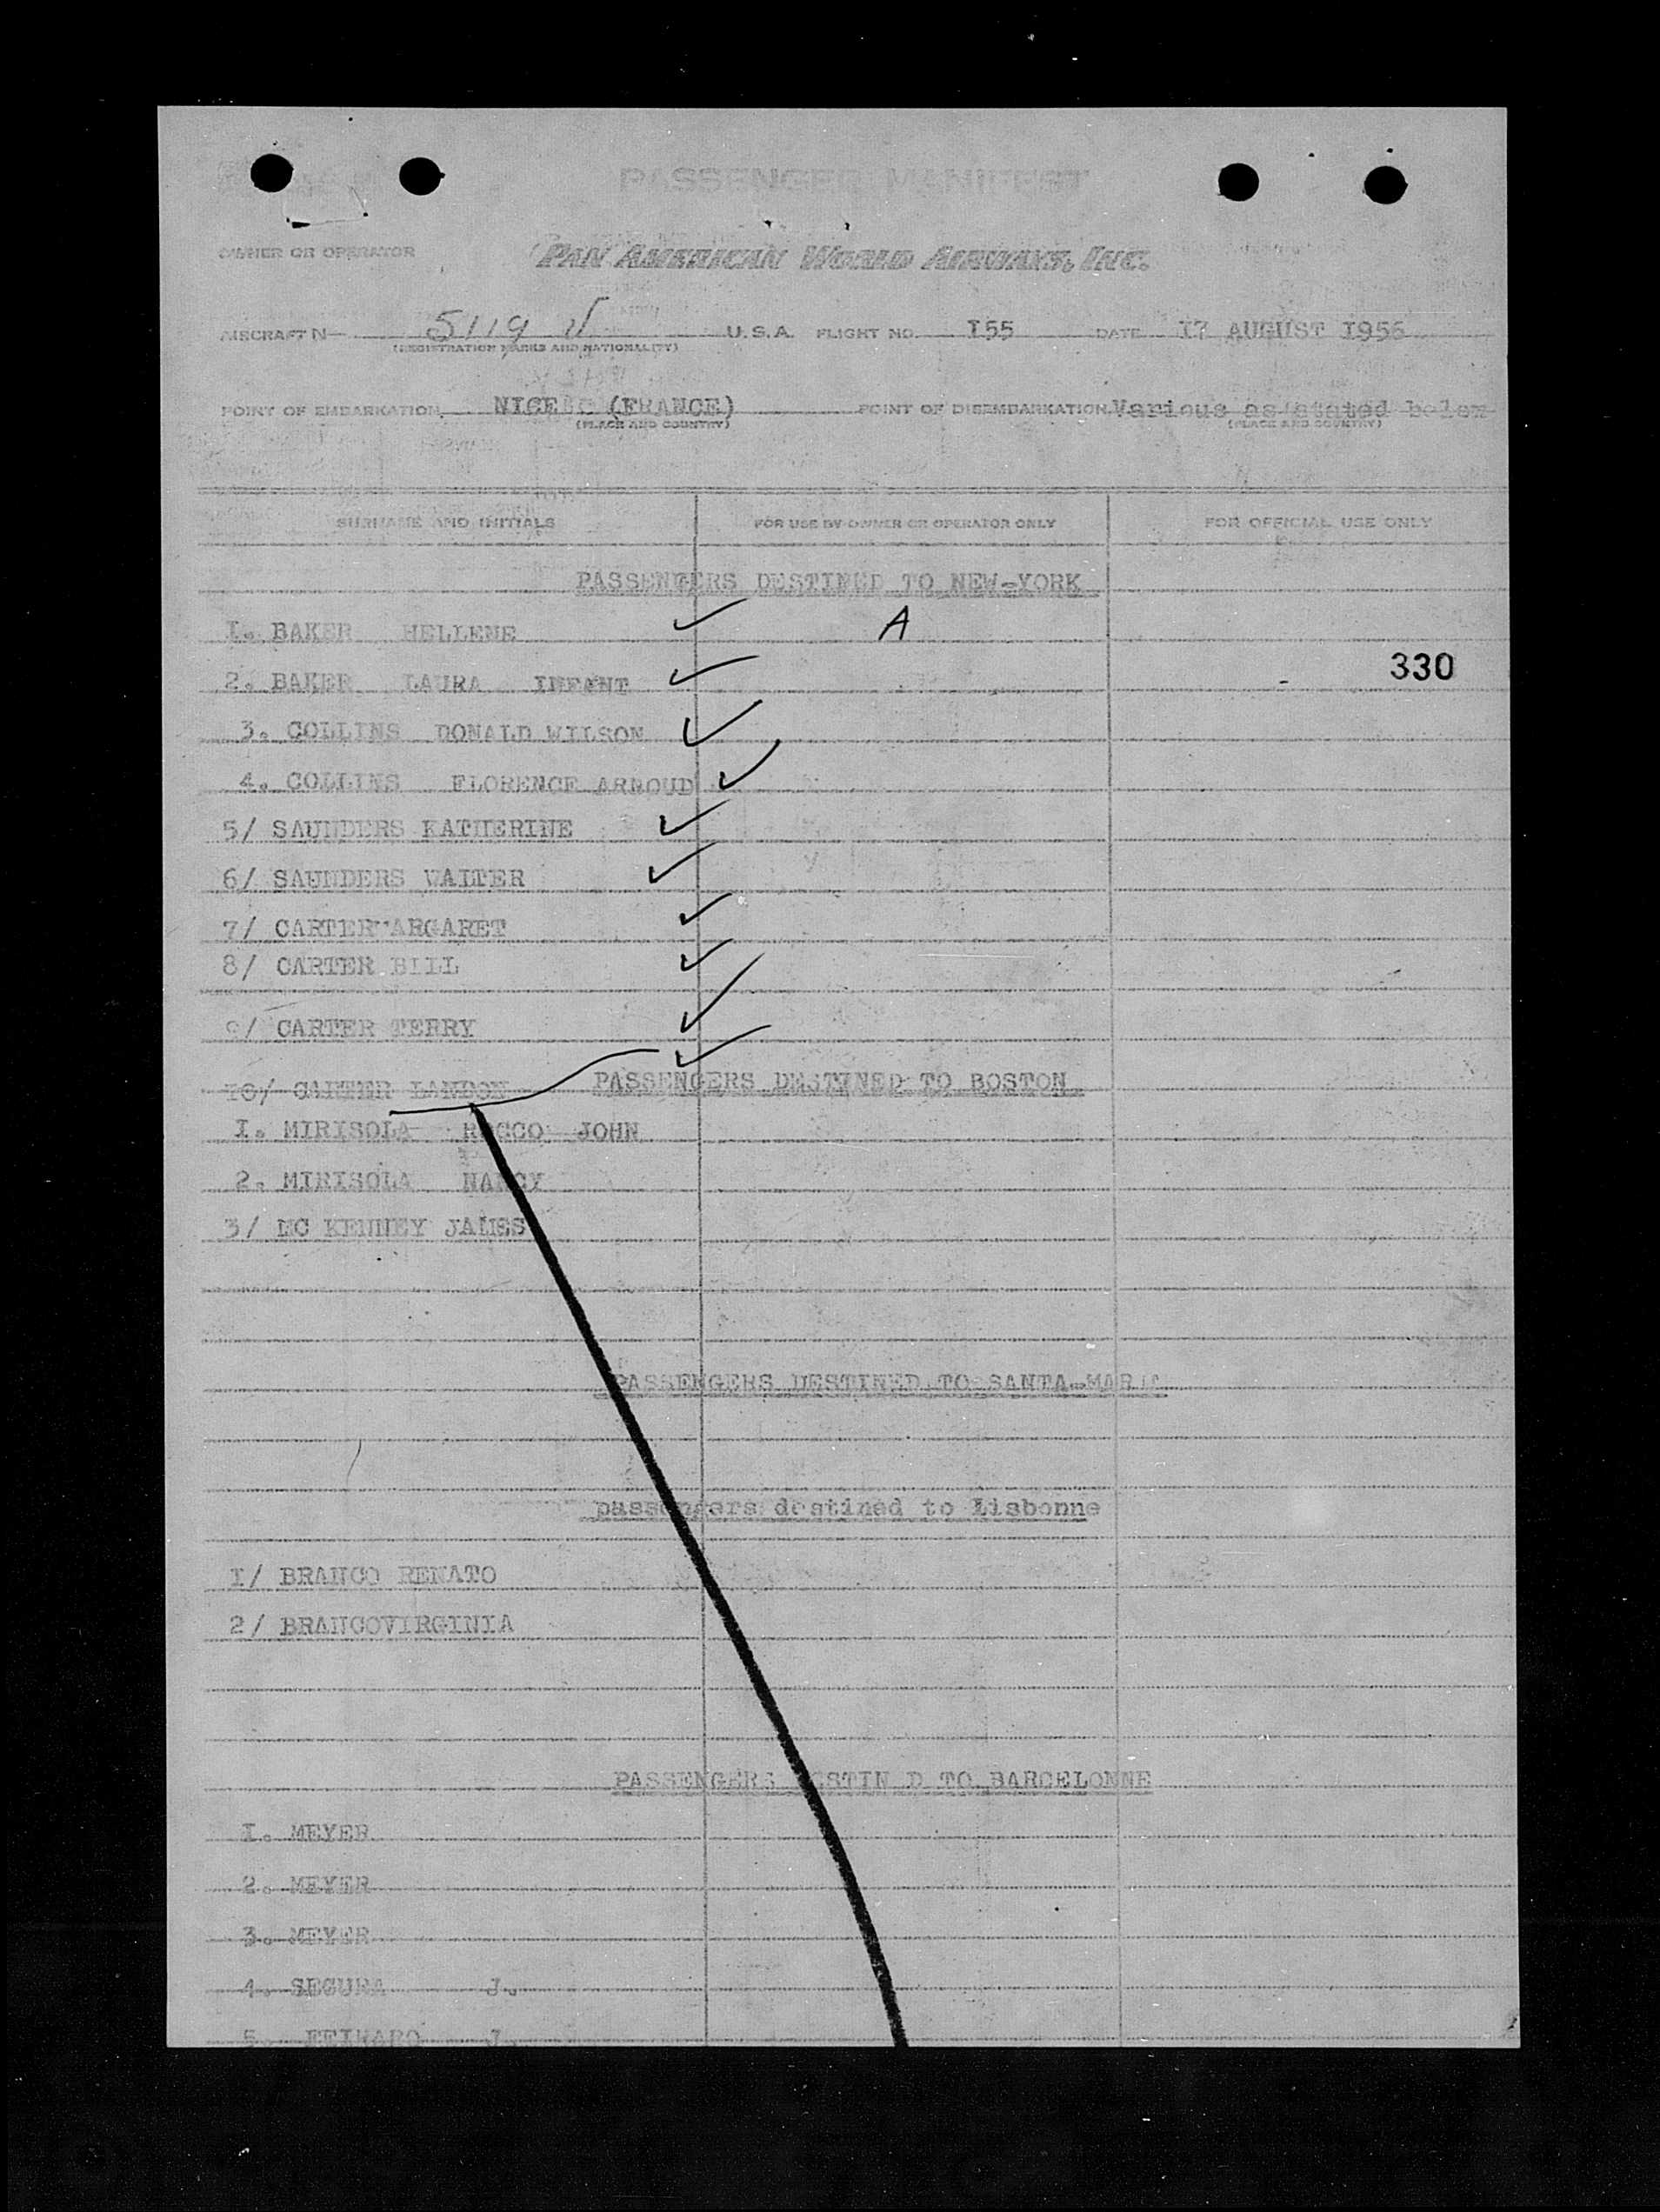 PASSENGER MANIFEST
OWNER OR OPERATOR PAN AMERICAN WORLD AIRWAYS, INC.
AIRCRAFT N 5119 V U.S.A. FLIGHT NO. I55 DATE I7 AUGUST I956
(REGISTRATION MARKS AND NATIONALITY)
POINT OF EMBARKATION NICE (FRANCE) POINT OF DISEMBARKATION Various as stated below
(PLACE AND COUNTRY) (PLACE AND COUNTRY)
SURNAME AND INITIALS FOR USE BY OWNER OR OPERATOR ONLY FOR OFFICIAL USE ONLY
PASSENGERS DESTINED TO NEW-YORK
I. BAKER HELLENE A
330
2. BAKER LAURA INFANT
3. COLLINS DONALD WILSON
4. COLLINS FLORENCE ARNOUD
5/ SAUNDERS KATHERINE
6/ SAUNDERS WALTER
7/ CARTER ARGARET
8/ CARTER BILL
9/ CARTER TERRY
IO/ CARTER LANDON PASSENGERS DESTINED TO BOSTON
I. MIRISOLA ROCCO JOHN
2. MIRISOLA NANCY
3/ MC KENNEY JAMES
PASSENGERS DESTINED TO SANTA-MARIA
passengers destined to Lisbonne
I/ BRANCO RENATO
2/ BRANCOVIRGINIA
PASSENGERS DESTINED TO BARCELONNE
I. MEYER
2. MEYER
3. MEYER
4. SEGURA J.
5. J.